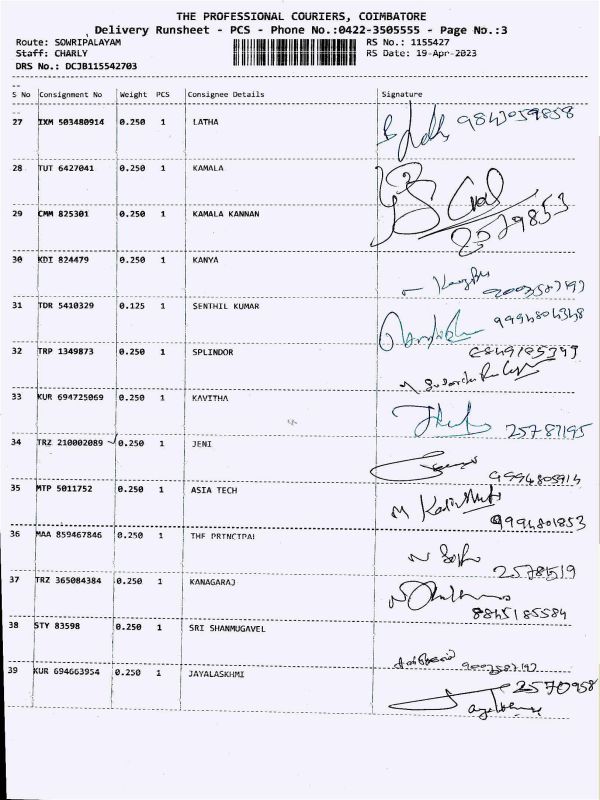 THE PROFESSIONAL COURIERS, COIMBATORE
Delivery Runsheet - PCS - Phone No.:0422-3505555 - Page No.:3
Route: SOWRIPALAYAM RS No.: 1155427
Staff: CHARLY RS Date: 19-Apr-2023
DRS No.: DCJB115542703
S No Consignment No Weight PCS Consignee Details Signature
27 IXM 503480914 0.250 1 LATHA 9843059858
28 TUT 6427041 0.250 1 KAMALA
29 CMM 825301 0.250 1 KAMALA KANNAN 2579853
30 KDI 824479 0.250 1 KANYA
31 TDR 5410329 0.125 1 SENTHIL KUMAR
32 TRP 1349873 0.250 1 SPLINDOR
33 KUR 694725069 0.250 1 KAVITHA 25787195
34 TRZ 210002089 0.250 1 JENI 9994805914
35 MTP 5011752 0.250 1 ASIA TECH 9994801853
36 MAA 859467846 0.250 1 THE PRINCIPAL
37 TRZ 365084384 0.250 1 KANAGARAJ 8845185584
38 STY 83598 0.250 1 SRI SHANMUGAVEL
39 KUR 694663954 0.250 1 JAYALASKHMI 2570958